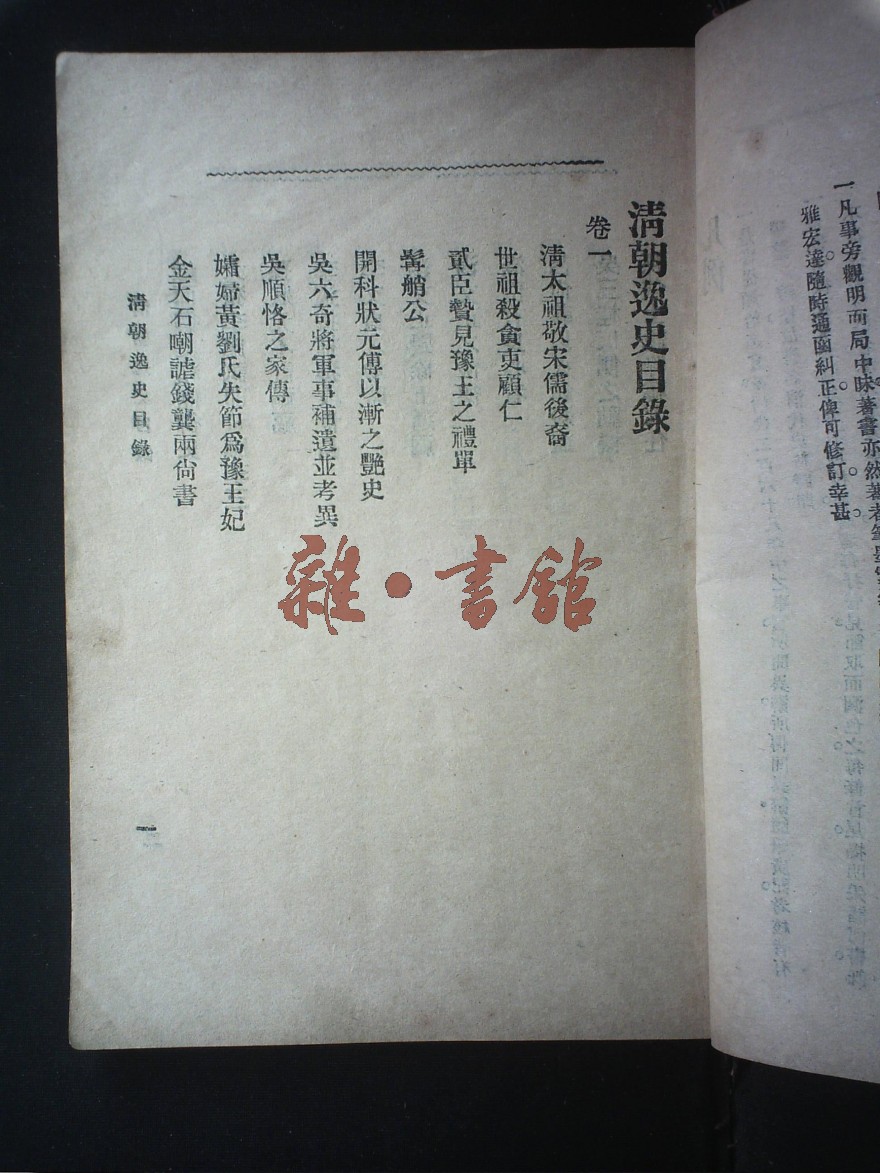 一凡事旁觀明而局中昧著書亦然著者
雅宏達隨時通函糾正俾可修訂幸甚
清朝逸史目錄
卷一
清太祖敬宋儒後裔
世祖殺貪吏顧仁
貳臣贄見豫王之禮單
髯艄公
開科狀元傅以漸之艷史
吳六奇將軍事補遺並考異
吳順恪之家傳
孀婦黃劉氏失節爲豫王妃
金天石嘲謔錢龔兩尙書
清朝逸史目錄
一
雜·書館